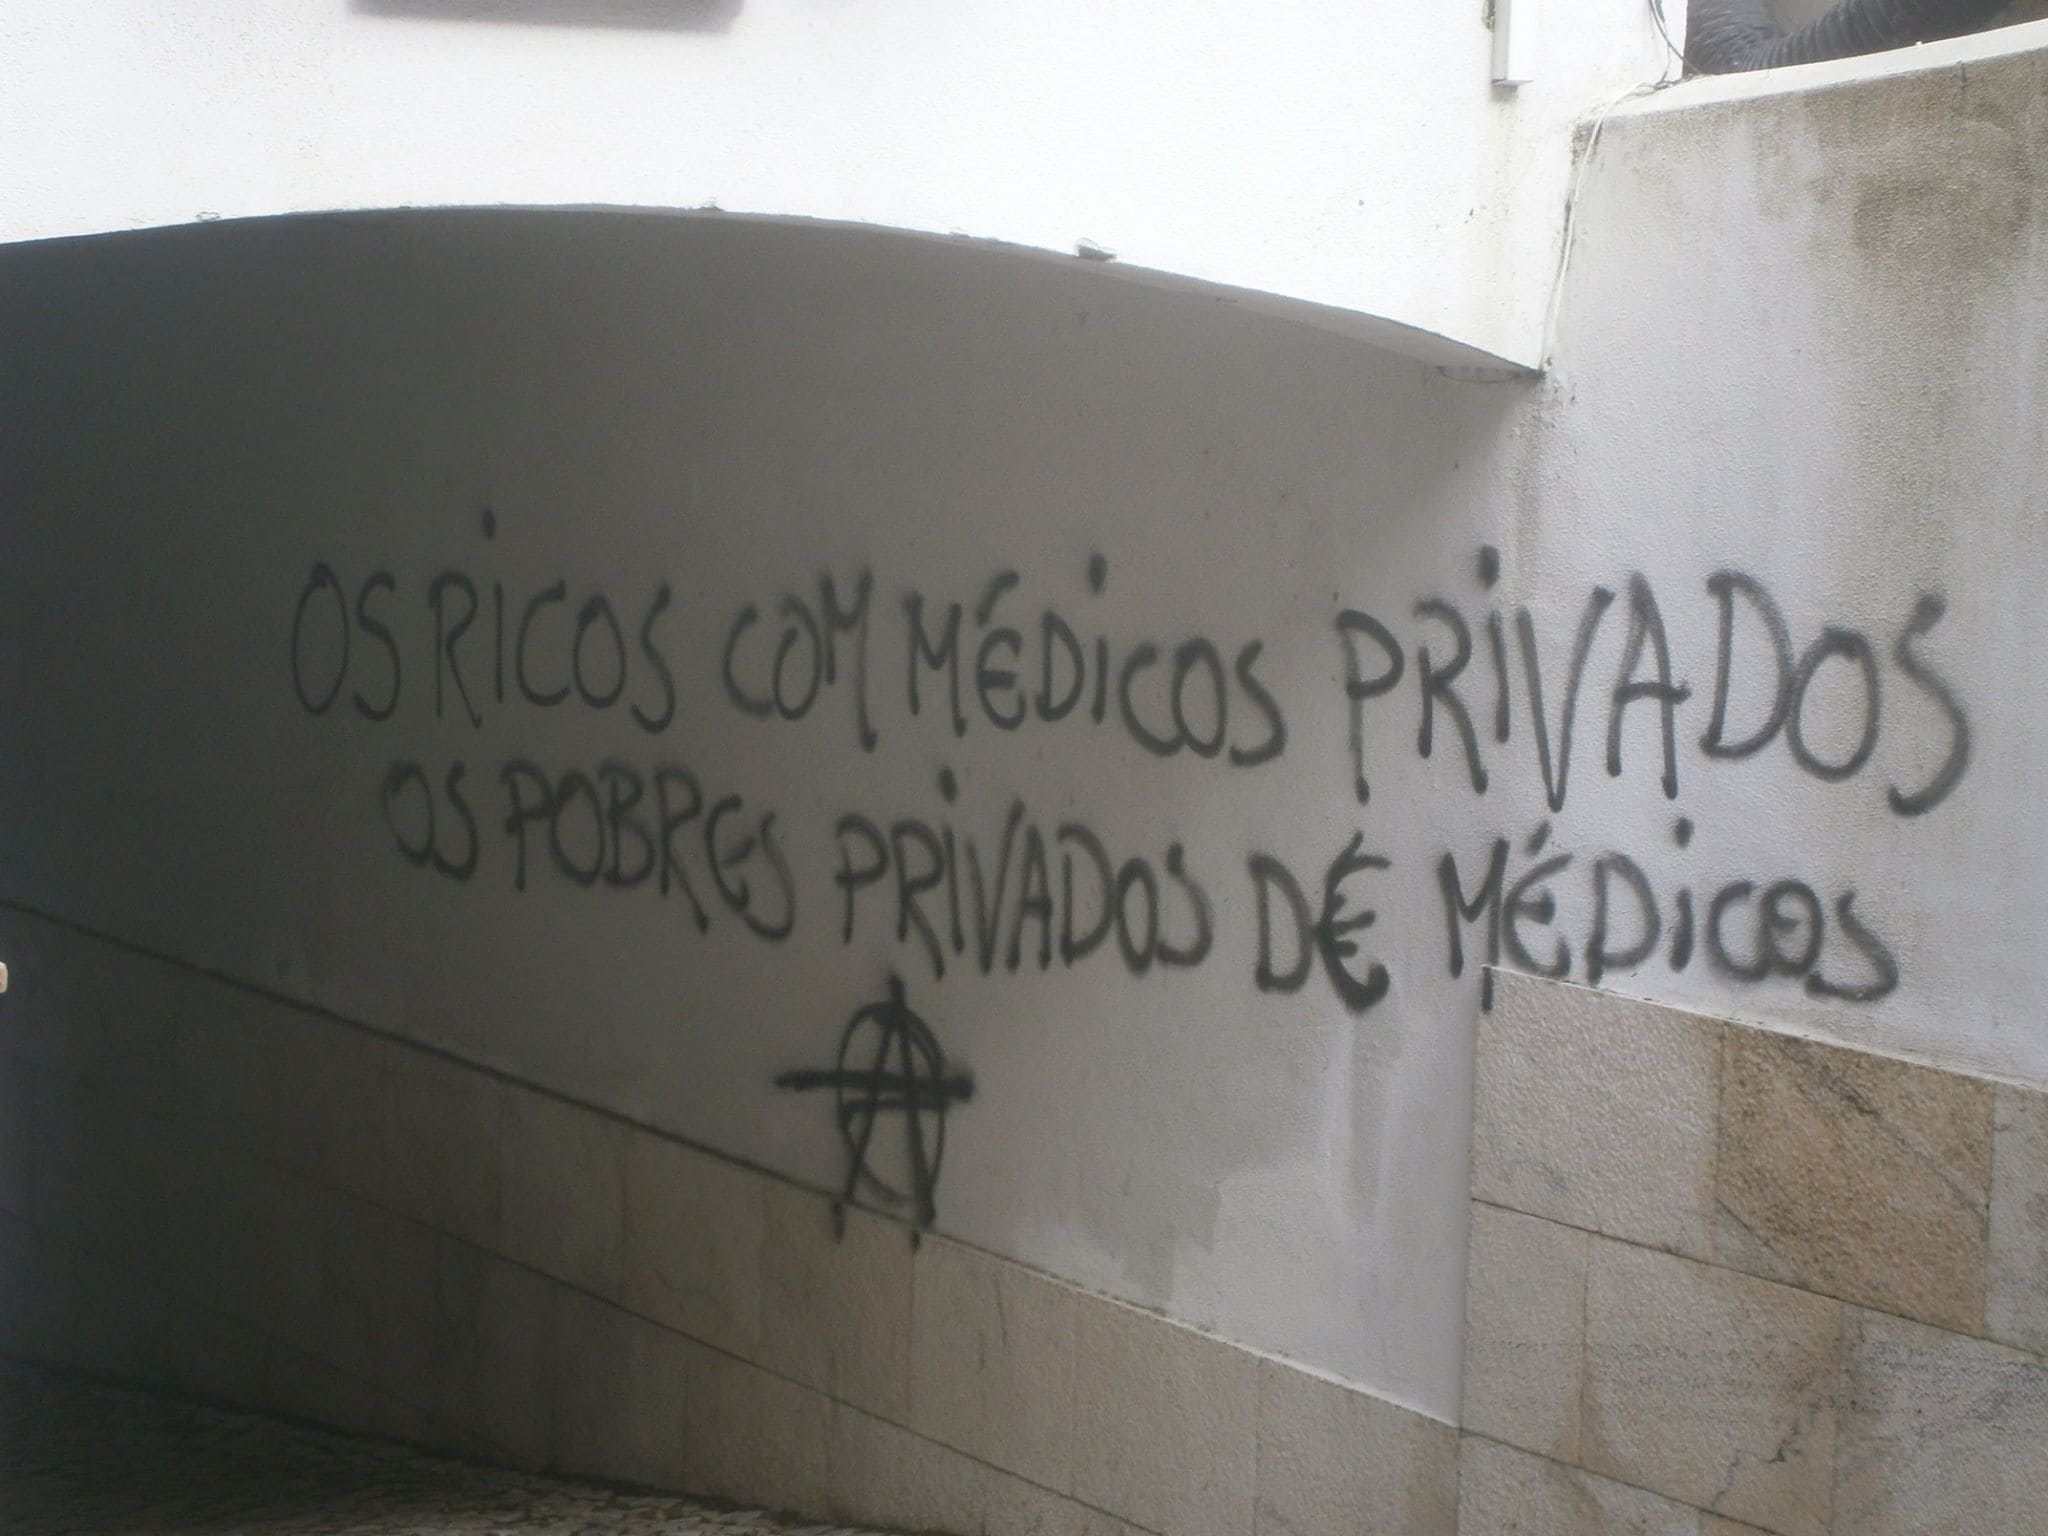 OS RiCOS COM MÉDiCOS PRiVADOS
OS POBRES PRiVADOS DÉ MÉDiCOS
A